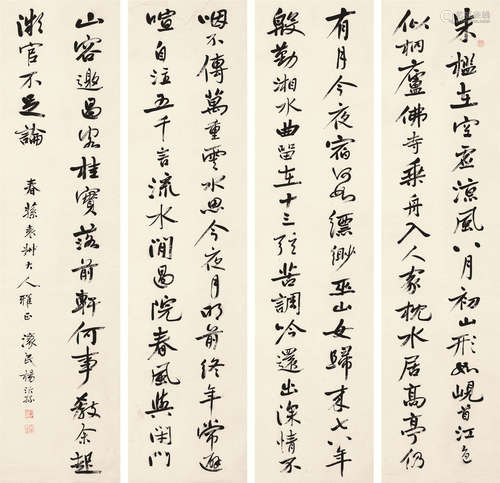 朱檻在空虛涼風八月初山形如峴首江色
似桐廬佛寺乘舟入人家枕水居高亭仍
有月今夜宿何如縹緲巫山女歸來七八年
殷勤湘水曲留在十三弦苦調吟還出深情不
咽不傳萬重雲水思今夜月明前終年常避
喧自注五千言流水閒過院春風與閉門
山容邀過客桂實落前軒何事教余起
微官不足論
大人雅正 濠民楊沂孫